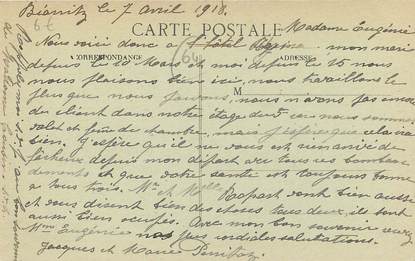 Biarritz le 7 Avril 1918.
CARTE POSTALE
Madame Eugénie
Nous voici donc a l'hôtel mon mari
CORRESPONDANCE
ADRESSE
depuis le 10 Mars et moi depuis le 25 nous
nous plaisons bien ici, nous travaillons le
plus que nous pouvons, nous n'avons pas encore
M
de client dans notre étage du 5 car nous sommes
valet et fme de chambre, mais j'espère que cela ira
bien. J'espère qu'il ne vous est rien arrivé de
fâcheux depuis mon départ avec tous ces bombar
dements et que votre santé est toujours bonne
a tous trois. Mr et Melle Rapart vont bien aussi
et vous disent bien des choses tous deux, ils sont
aussi bien occupés. Avec mon bon souvenir recevez
Mme Eugénie nos cordiales salutations.
Jacques et Marie